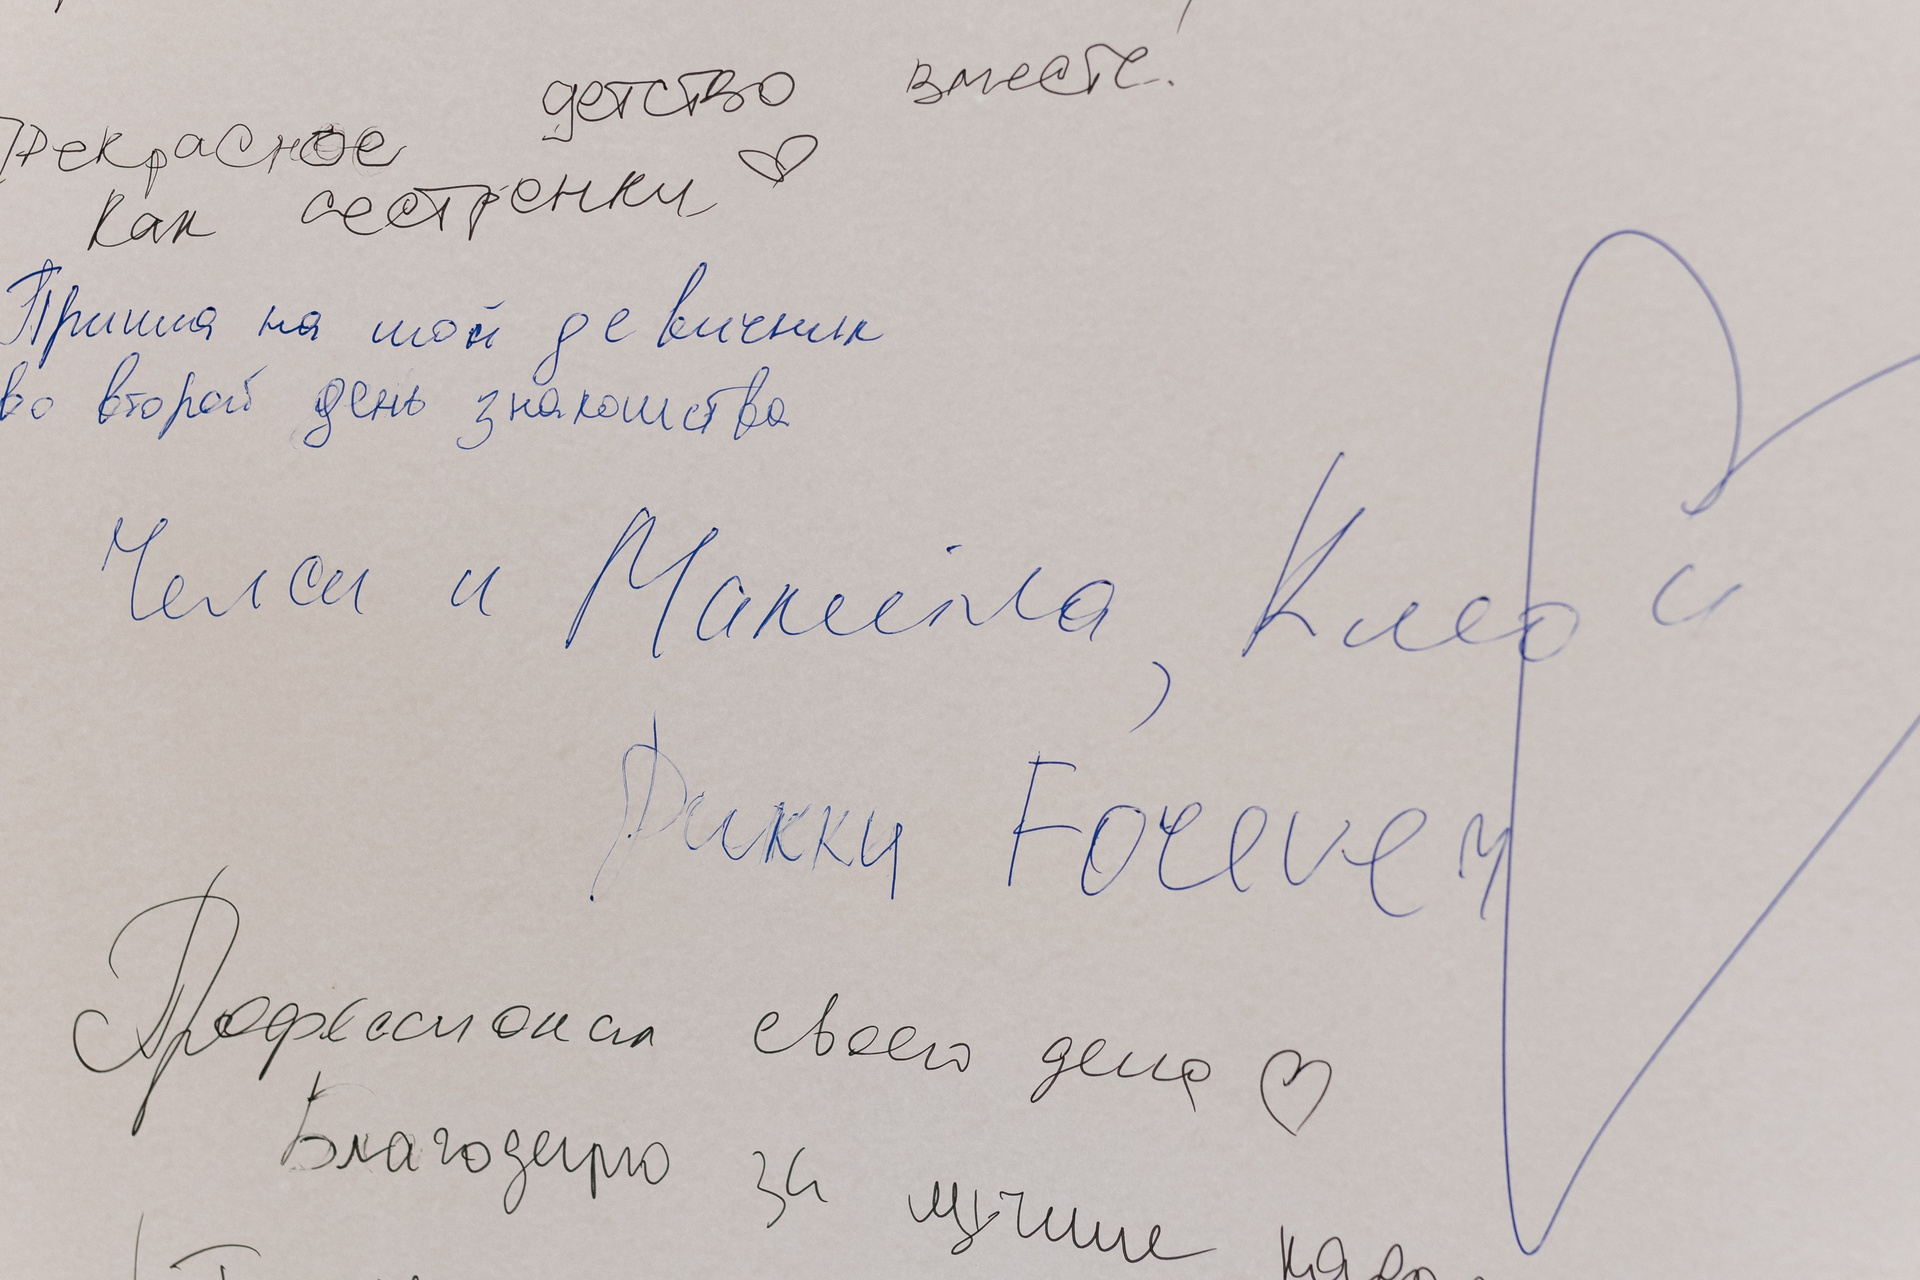 Прекрасное детство вместе.
как сестренки
Пришла на мой девичник
во второй день знакомства
Челси и Макейла, Клео и
Рикки Forever
Профессионал своего дела
Благодарю за лучшие